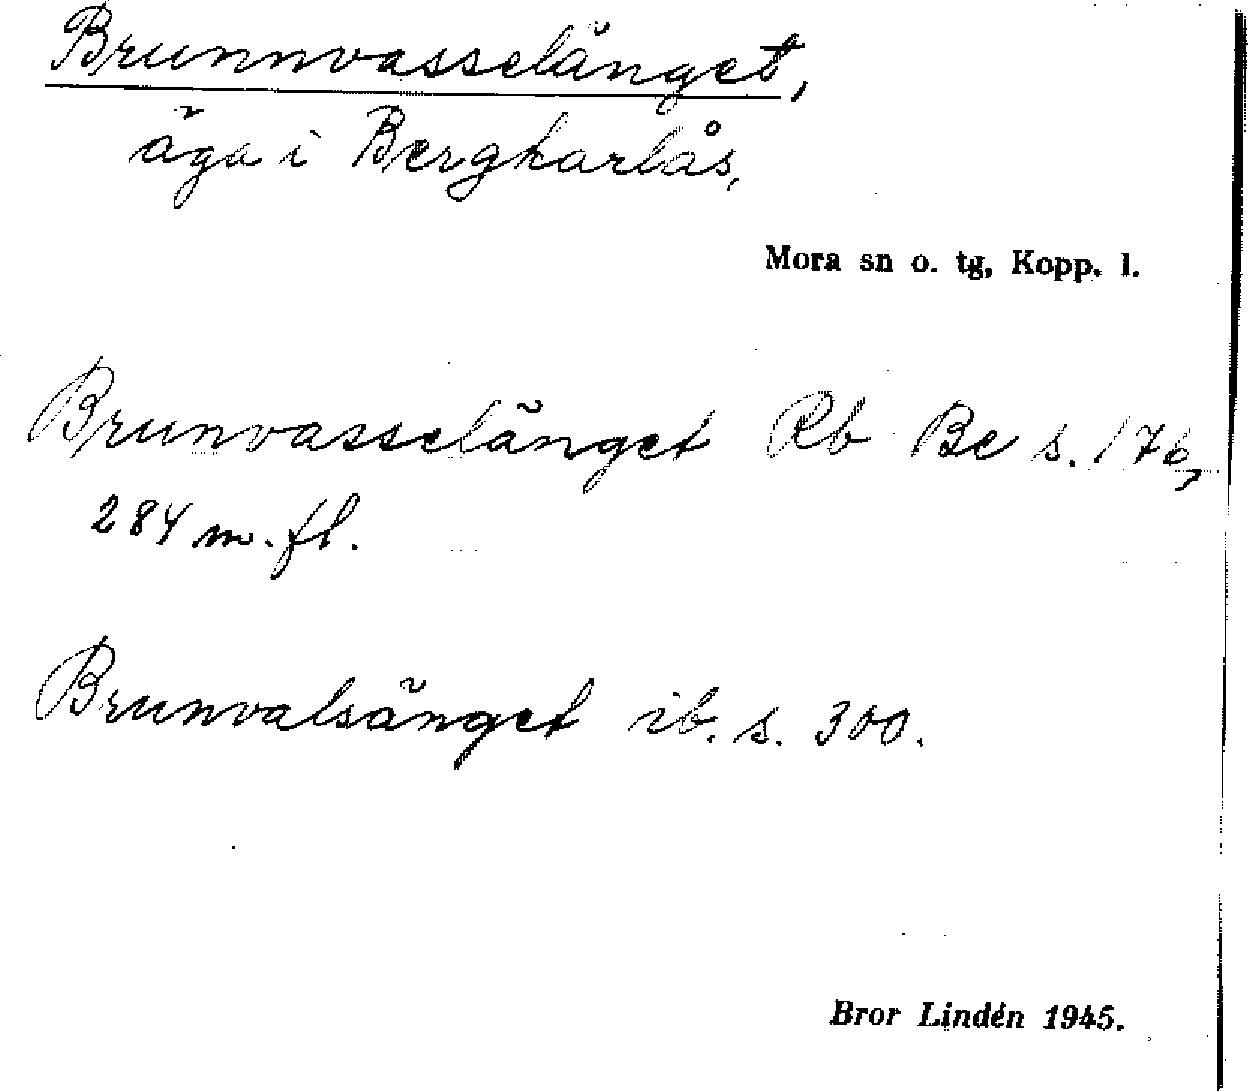 Brunnvasselänget,
äga i Bergkarlås,
Mora sn o. tg, Kopp. l.
Brunvasselänget Rb Be s. 176,
284 m. fl.
Brunvalsänget ib. s. 300.
Bror Lindén 1945.